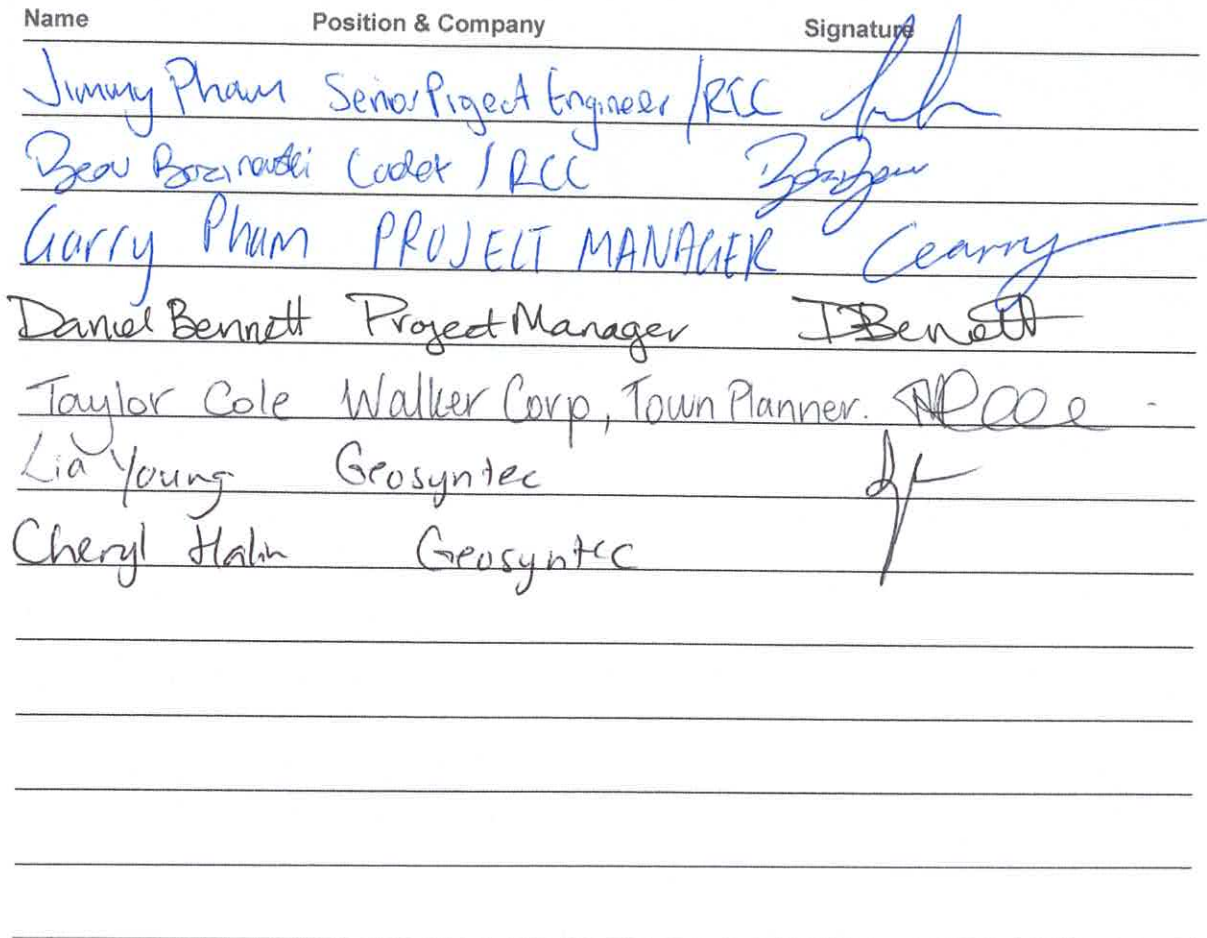 Name Position & Company Signature
Jimmy Pham Senior Project Engineer /RCC
Beau Bozinovski Cadet / RCC
Garry Pham PROJECT MANAGER Gearry
Daniel Bennett Project Manager DBennett
Taylor Cole Walker Corp, Town Planner.
Lia Young Geosyntec
Cheryl Halim Geosyntec